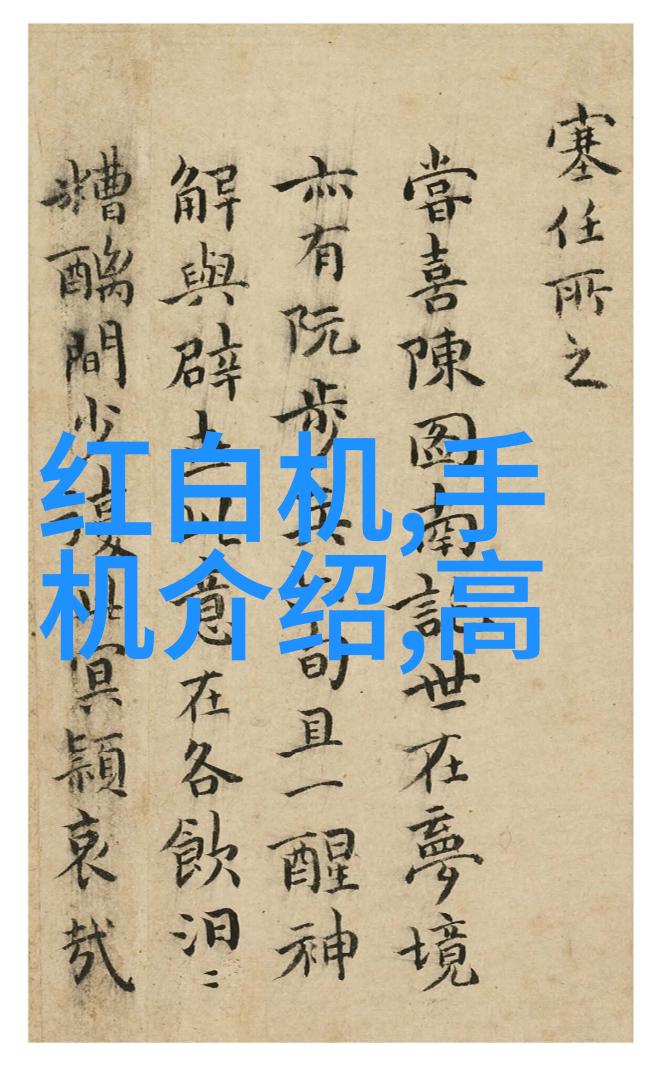 塞任所之
甞喜陳图南世在夢境
亦有阮步兵旬且一醒神
解與辟意在各飲汩〻
糟醨間少復冥穎哀哉
红白机,手
机介绍,高